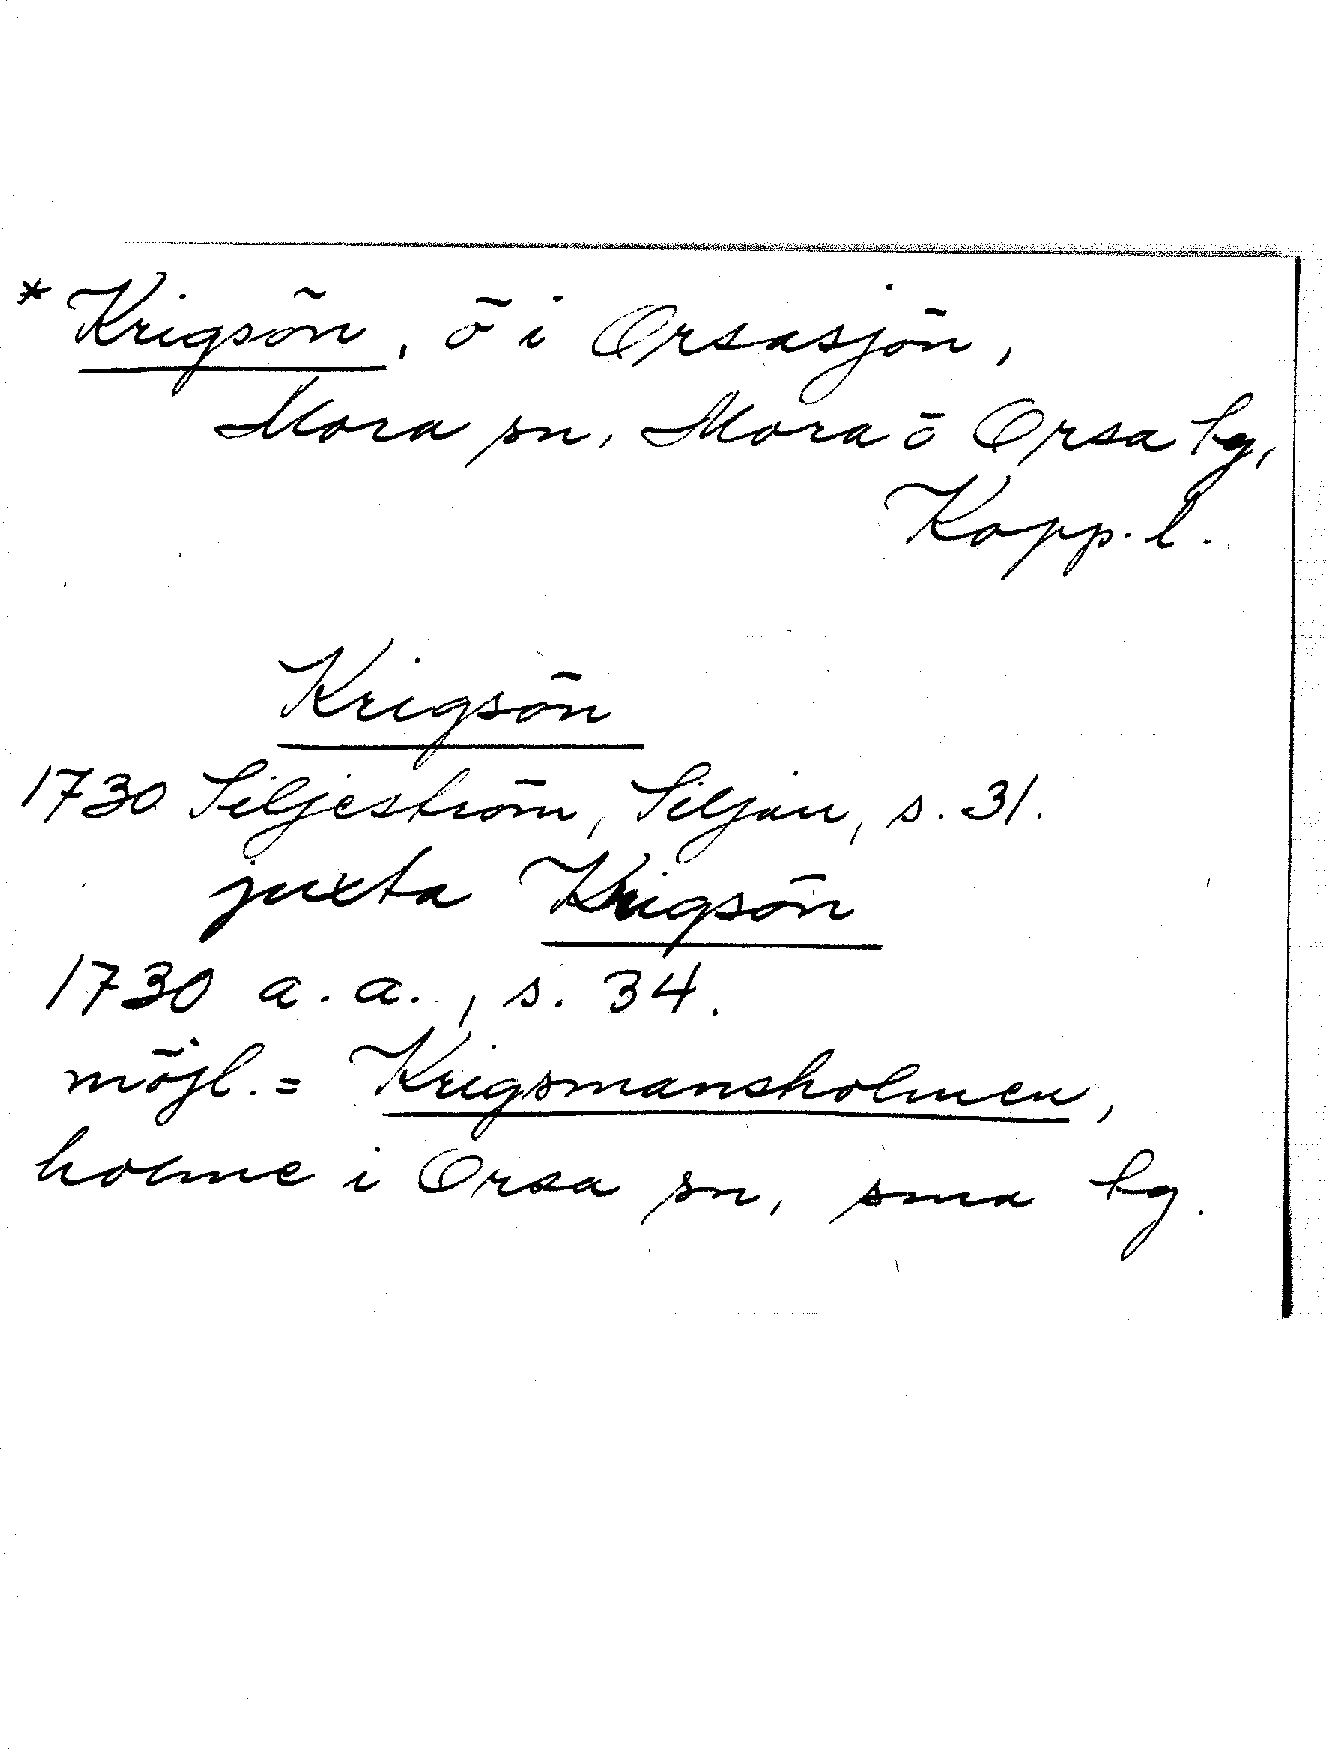 * Krigsön, ö i Orsasjön,
Mora sn, Mora ö Orsa tg,
Kopp. l.
Krigsön
1730 Siljeström, Siljan, s. 31.
juxta Krigsön
1730 a. a., s. 34.
möjl. = Krigsmansholmen,
holme i Orsa sn, sma tg.